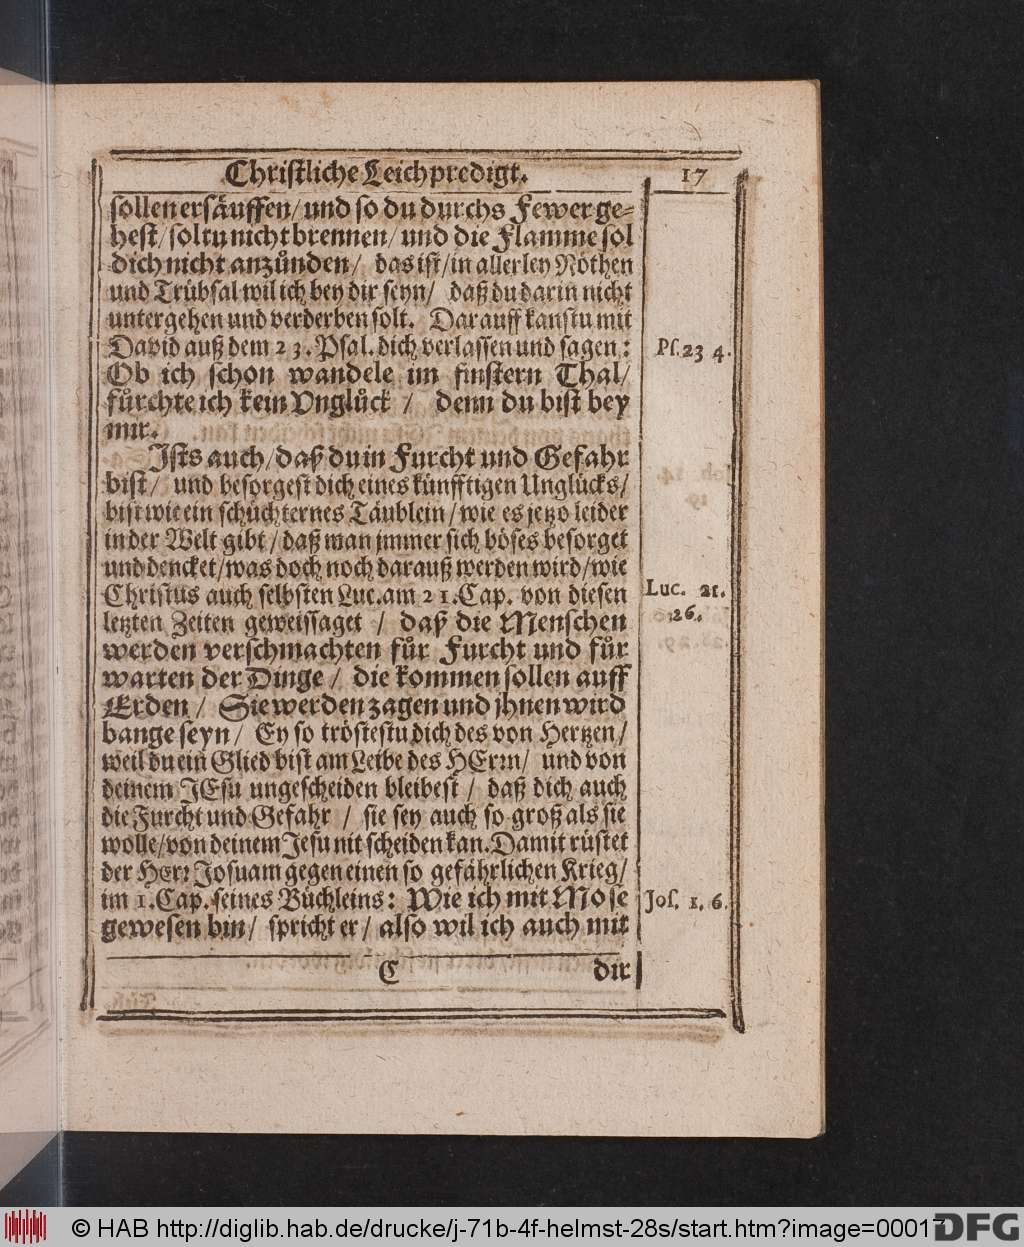 Christliche Leichpredigt. 17
sollen ersäuffen/ und so du durchs Fewer ge-
hest/ soltu nicht brennen/ und die Flamme sol
dich nicht anzůnden/ das ist/ in allerley Nöthen
und Trübsal wil ich bey dir seyn/ daß du darin nicht
untergehen und verderben solt. Darauff kanstu mit
David auß dem 23. Psal. dich verlassen und sagen:
Ps. 23 4.
Ob ich schon wandele im finstern Thal/
fůrchte ich kein Vnglůck / denn du bist bey
mir.
Ists auch/ daß du in Furcht und Gefahr
bist/ und besorgest dich eines künfftigen Unglücks/
bist wie ein schüchternes Täublein/ wie es jetzo leider
in der Welt gibt/ daß man jmmer sich böses besorget
und dencket/ was doch noch darauß werden wird/ wie
Christus auch selbsten Luc. am 21. Cap. von diesen
Luc. 21.
26.
letzten Zeiten geweissaget / daß die Menschen
werden verschmachten fůr Furcht und fůr
warten der Dinge / die kommen sollen auff
Erden / Sie werden zagen und jhnen wird
bange seyn/ Ey so tröstestu dich des von Hertzen/
weil du ein Glied bist am Leibe des HErrn/ und von
deinem JEsu ungescheiden bleibest / daß dich auch
die Furcht und Gefahr / sie sey auch so groß als sie
wolle/ von deinem Jesu nit scheiden kan. Damit rüstet
der HErr Josuam gegen einen so gefährlichen Krieg/
im 1. Cap. seines Büchleins: Wie ich mit Mose
Jos. 1. 6.
gewesen bin/ spricht er/ also wil ich auch mit
C dir
© HAB http://diglib.hab.de/drucke/j-71b-4f-helmst-28s/start.htm?image=00017
DFG